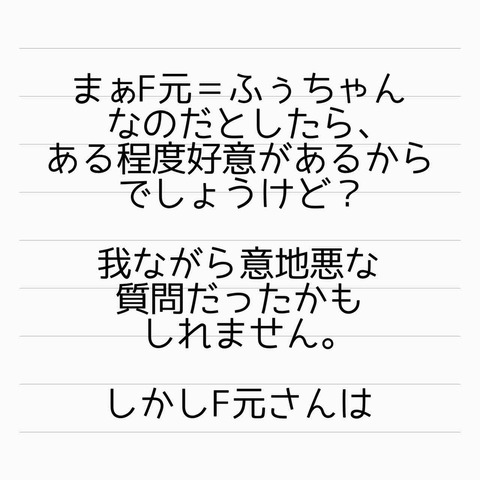 まぁF元＝ふぅちゃん
なのだとしたら、
ある程度好意があるから
でしょうけど？
我ながら意地悪な
質問だったかも
しれません。
しかしF元さんは